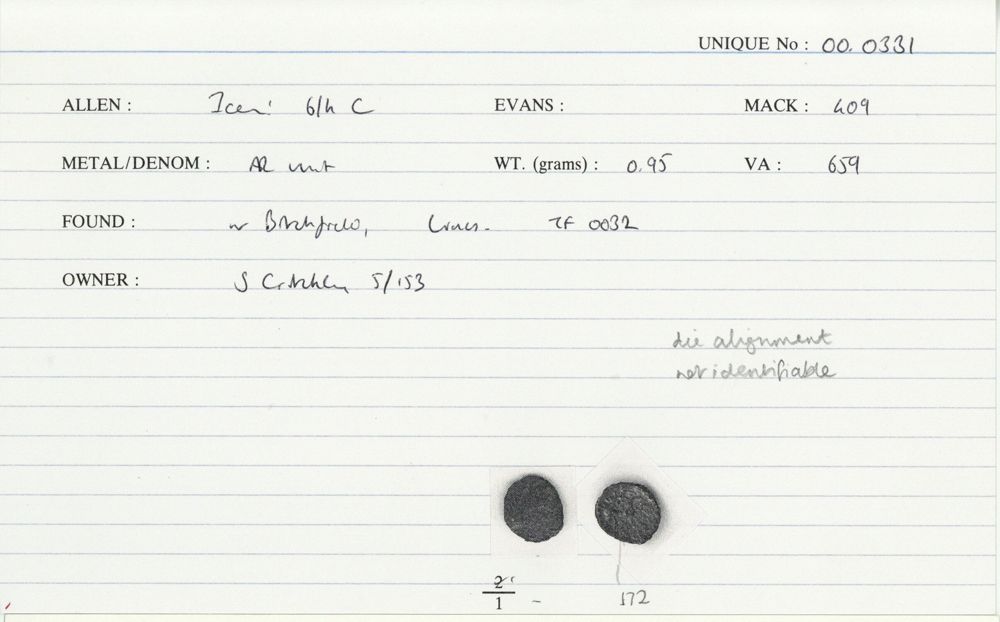 UNIQUE No : 00. 0331
ALLEN : Iceni 6/h C EVANS : MACK : 409
METAL/DENOM : AR unit WT. (grams) : 0.95 VA : 659
FOUND : nr Bitchfield, Lincs. TF 0032
OWNER : S Critchley 5/153
die alignment
not identifiable
2
1 - 172